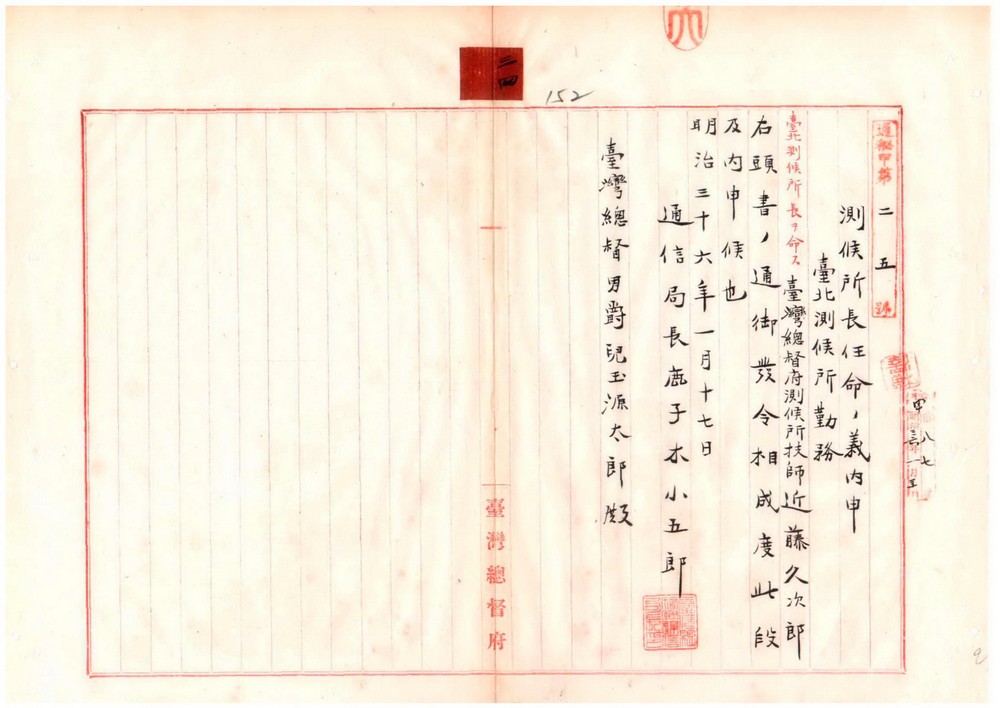 通秘甲第二五號
測候所長任命ノ義内申
臺北測候所勤務
臺北測候所長ヲ命ス
臺灣總督府測候所技師近藤久次郎
右頭書ノ通御發令相成度此段
及内申候也
明治三十六年一月十七日
通信局長鹿子木小五郎
臺灣總督男爵兒玉源太郎殿
臺灣總督府
三四
152
大
甲
八七